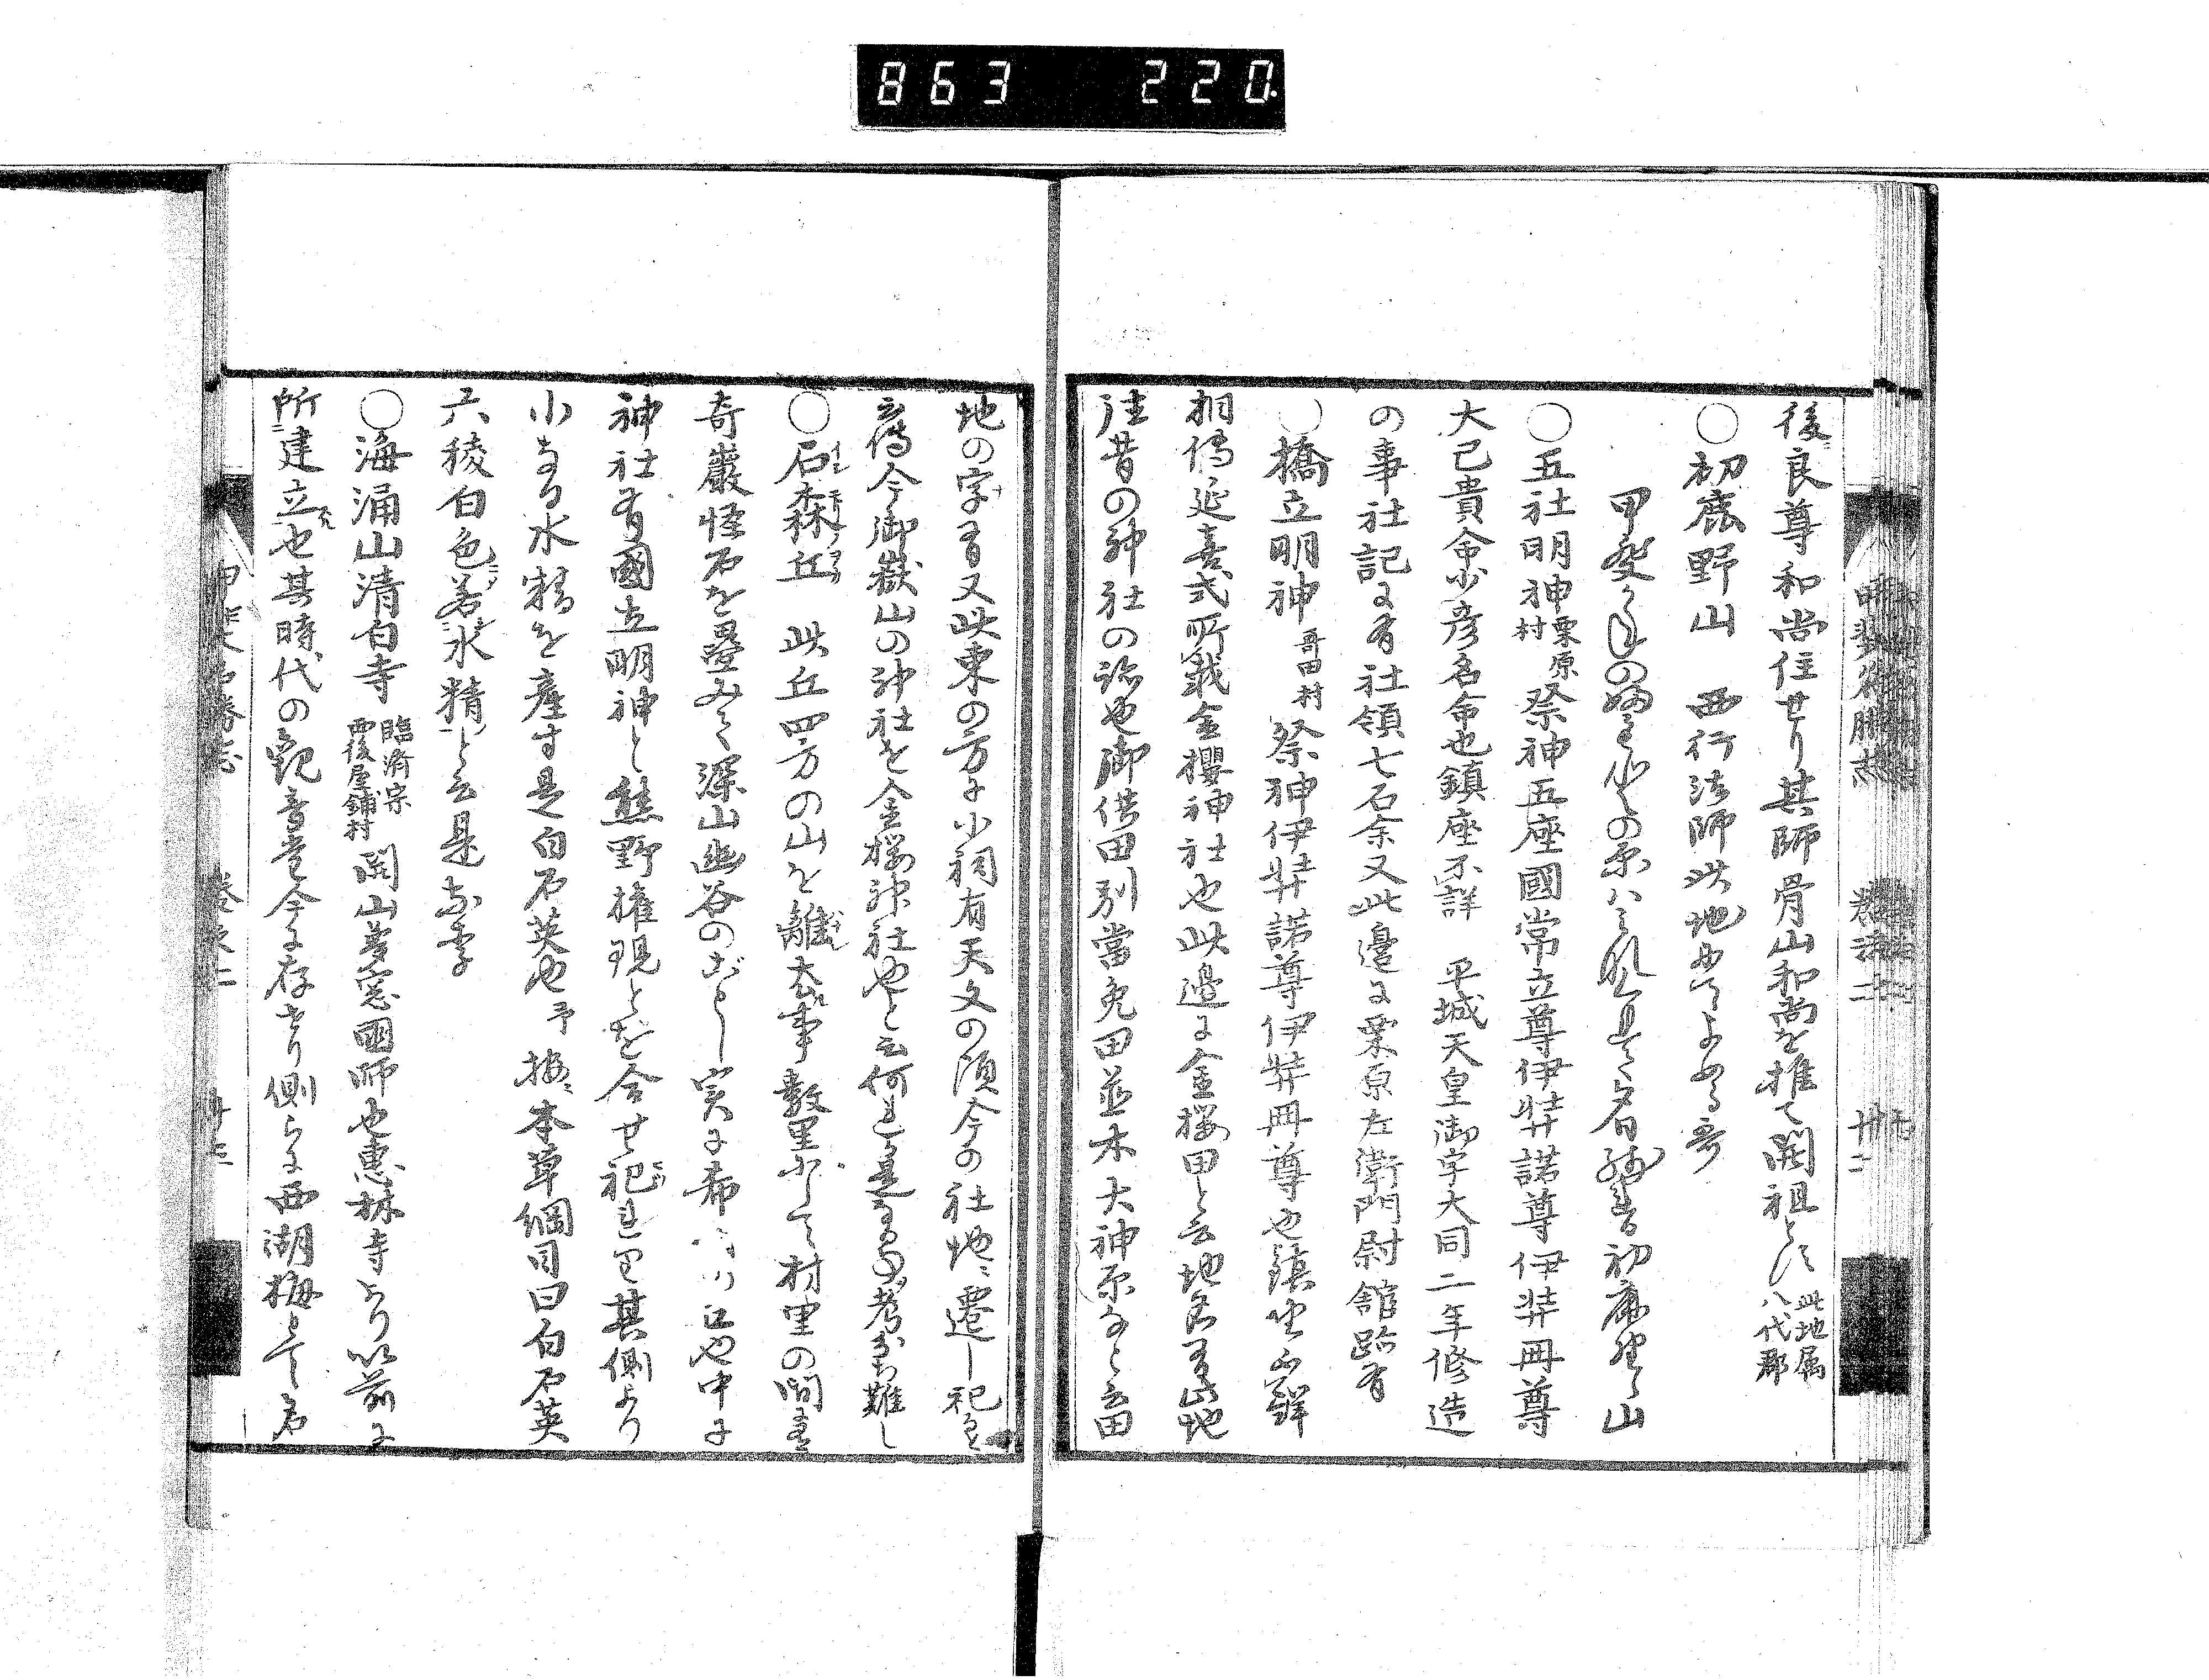 863 220
後良尊和尚住せり其師骨山和尚を推て開祖とす 此地属八代郡
〇初鹿野山 西行法師此地にてよめる哥
〇五社明神 栗原村 祭神五座國常立尊伊弉諾尊伊弉冊尊
大己貴命少彦名命也鎮座不詳 平城天皇御宇大同二年修造
の事社記に有社領七石余又此邊に栗原左衛門尉舘跡有
〇橋立明神 哥田村 祭神伊弉諾尊伊弉冊尊也鎮坐不詳
相傳延喜式所載金櫻神社也此邊に金桜田と云地名有此地
往昔の神社の跡也御供田別當免田並木大神原など云田
地の字有又此東の方に小祠有天文の頃今の社地に遷し祀
云傳今御嶽山の神社を金桜神社也と云何れ是なる 考分ち難し
〇石森丘 此丘四方の山を離去事数里にして村里の間
奇巖怪石を疊みて深山幽谷のごとし実に希 丘也中に
神社有國立明神と熊野権現とを合せ祀れり其側より
小なる水精を産す是白石英也予按本草綱目曰白石英
六稜白色若水精と云是
〇海涌山清白寺 臨濟宗 西後屋鋪村 開山夢窓國師也惠林寺より以前に
所建立也其時代の觀音堂今に存せり側らに西湖梅とて名
甲斐名勝志 巻之二